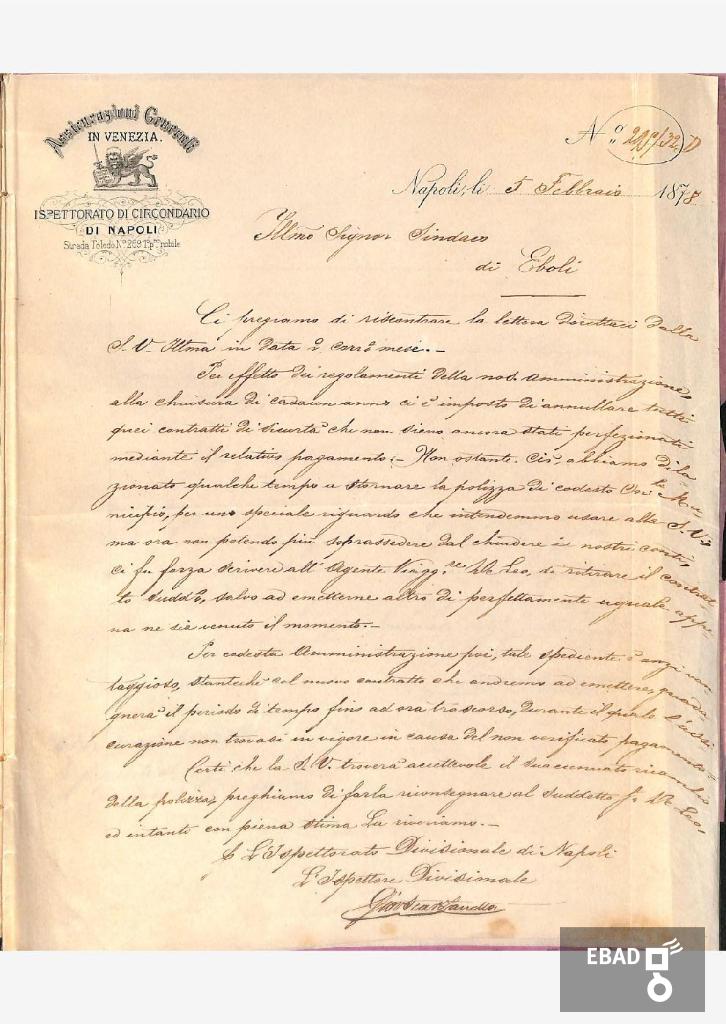 Assicurazioni Generali
IN VENEZIA.
ISPETTORATO DI CIRCONDARIO
DI NAPOLI
Strada Toledo N° 269 1° p.no nobile
N°
Napoli, li 5 Febbraio 1878
Illmo Signor Sindaco
di Eboli
Ci pregiamo di riscontrare la lettera direttaci dalla
S. V. Illma in data 2 corr.e mese.-
Per effetto dei regolamenti della nos. Amministrazione,
alla chiusura di cadaun anno ci è imposto di annullare tutti
quei contratti di sicurtà che non sieno ancora stati perfezionati
mediante il relativo pagamento.- Non ostante ciò, abbiamo dila
zionato qualche tempo a stornare la polizza di codesto Mu
nicipio, per uno speciale riguardo che intendemmo usare alla S. V.
ma ora non potendo più soprassedere dal chiudere i nostri conti,
ci fu forza scrivere all' Agente Viagg.re De Leo, di ritirare il contrat
to sudd°, salvo ad emetterne altro di perfettamente uguale appe
na ne sia venuto il momento.-
Per codesta Amministrazione poi, tale spediente è anzi van
taggioso, stantechè col nuovo contratto che andremo ad emettere, guada
gnerà il periodo di tempo fino ad ora trascorso, durante il quale l'assi
curazione non trovasi in vigore in causa del non verificato pagamento.
Certi che la S. V. troverà accettevole il suaccennato ricambio
della polizza, preghiamo di farla riconsegnare al suddetto De Leo,
ed intanto con piena stima La riveriamo.-
L'Ispettorato Divisionale di Napoli
L'Ispettore Divisionale
EBAD